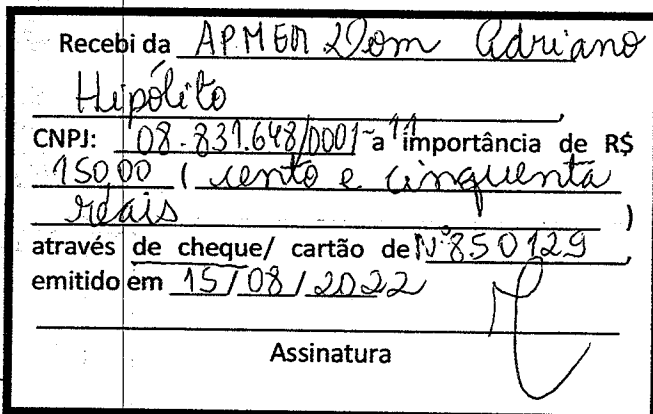 Recebi da APMEM Dom Adriano
Hipólito,
CNPJ: 08.831.648/0001-11 a importância de R$
150,00 (cento e cinquenta
reais)
através de cheque/ cartão de Nº 850129,
emitido em 15/08/2022
Assinatura